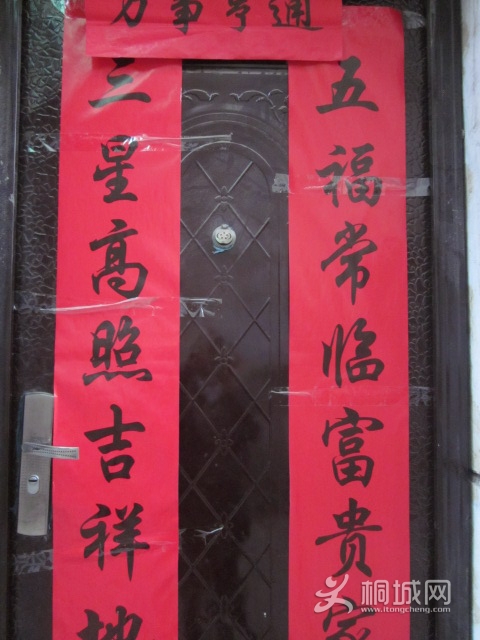 万事亨通
五福常临富贵家
三星高照吉祥地
桐城网
www.itongcheng.com